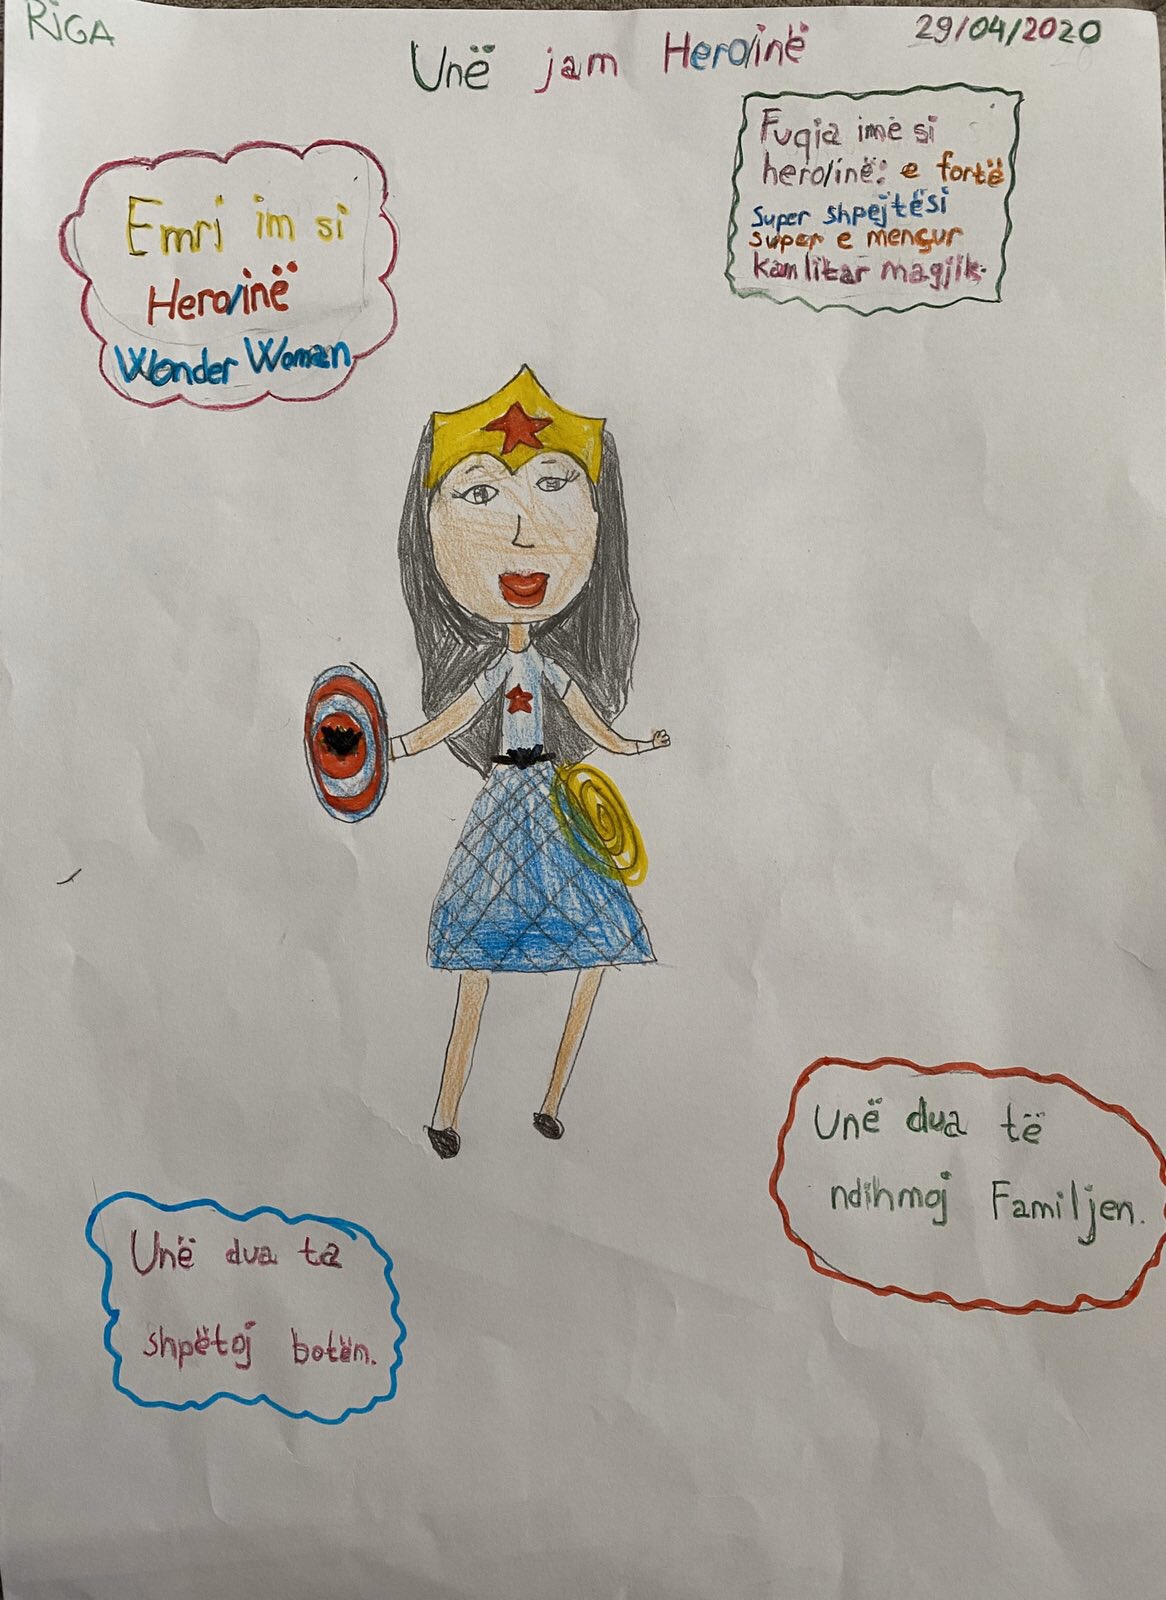 RiGA
29/04/2020
Unë jam Hero/inë
Emri im si
Hero/inë
Wonder Woman
Fuqia ime si
hero/inë: e fortë
Super shpejtësi
super e mençur
kam litar magjik.
Unë dua të
ndihmoj Familjen.
Unë dua ta
shpëtoj botën.